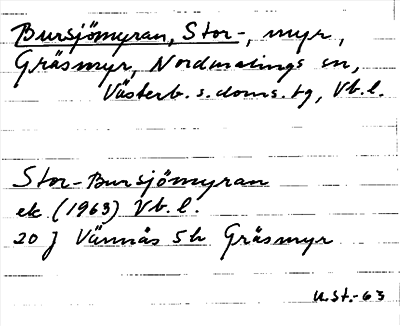 Bursjömyran, Stor-, myr,
Gräsmyr, Nordmalings sn,
Västerb. s. doms. tg, Vb. l.
Stor-Bursjömyran
ek. (1963) Vb. l.
20 J Vännäs 5h Gräsmyr
U.St.-63